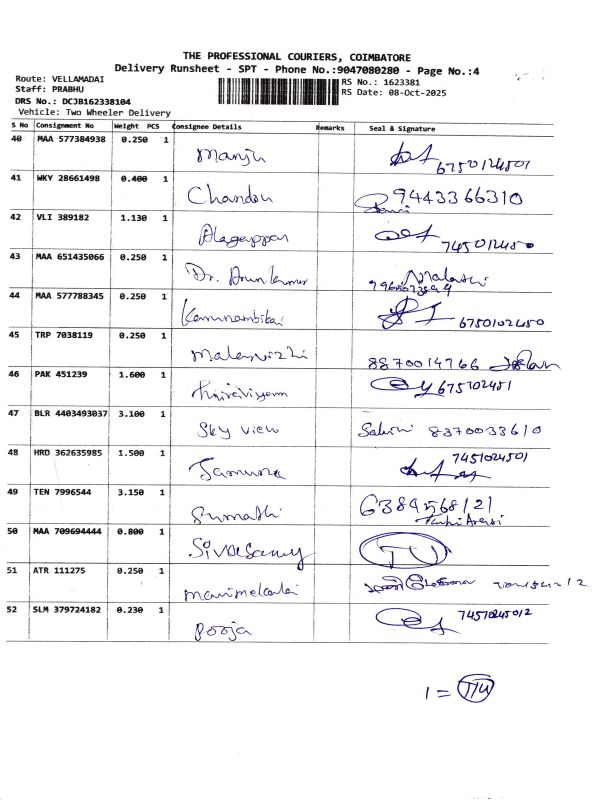 THE PROFESSIONAL COURIERS, COIMBATORE
Delivery Runsheet - SPT - Phone No.:9047080280 - Page No.:4
Route: VELLAMADAI
Staff: PRABHU
DRS No.: DCJB162338104
Vehicle: Two Wheeler Delivery
RS No.: 1623381
RS Date: 08-Oct-2025
S No Consignment No Weight PCS Consignee Details Remarks Seal & Signature
40 MAA 577384938 0.250 1 Manju 6750124501
41 WKY 28661498 0.400 1 Chandru 9443366310
42 VLI 389182 1.130 1 Alagappan 745012450
43 MAA 651435066 0.250 1 Dr. Arunkumar Malathi
44 MAA 577788345 0.250 1 Kamunambikai 6750102450
45 TRP 7038119 0.250 1 Malarvizhi 8870014766
46 PAK 451239 1.600 1 675102451
47 BLR 4403493037 3.100 1 Sky view 8370033610
48 HRD 362635985 1.500 1 Jamuna 7451024501
49 TEN 7996544 3.150 1 Sumathi 6384568121
50 MAA 709694444 0.800 1 Sivasamy TU
51 ATR 111275 0.250 1 Manimekalai
52 SLM 379724182 0.230 1 Pooja 74570245012
1 = T/U